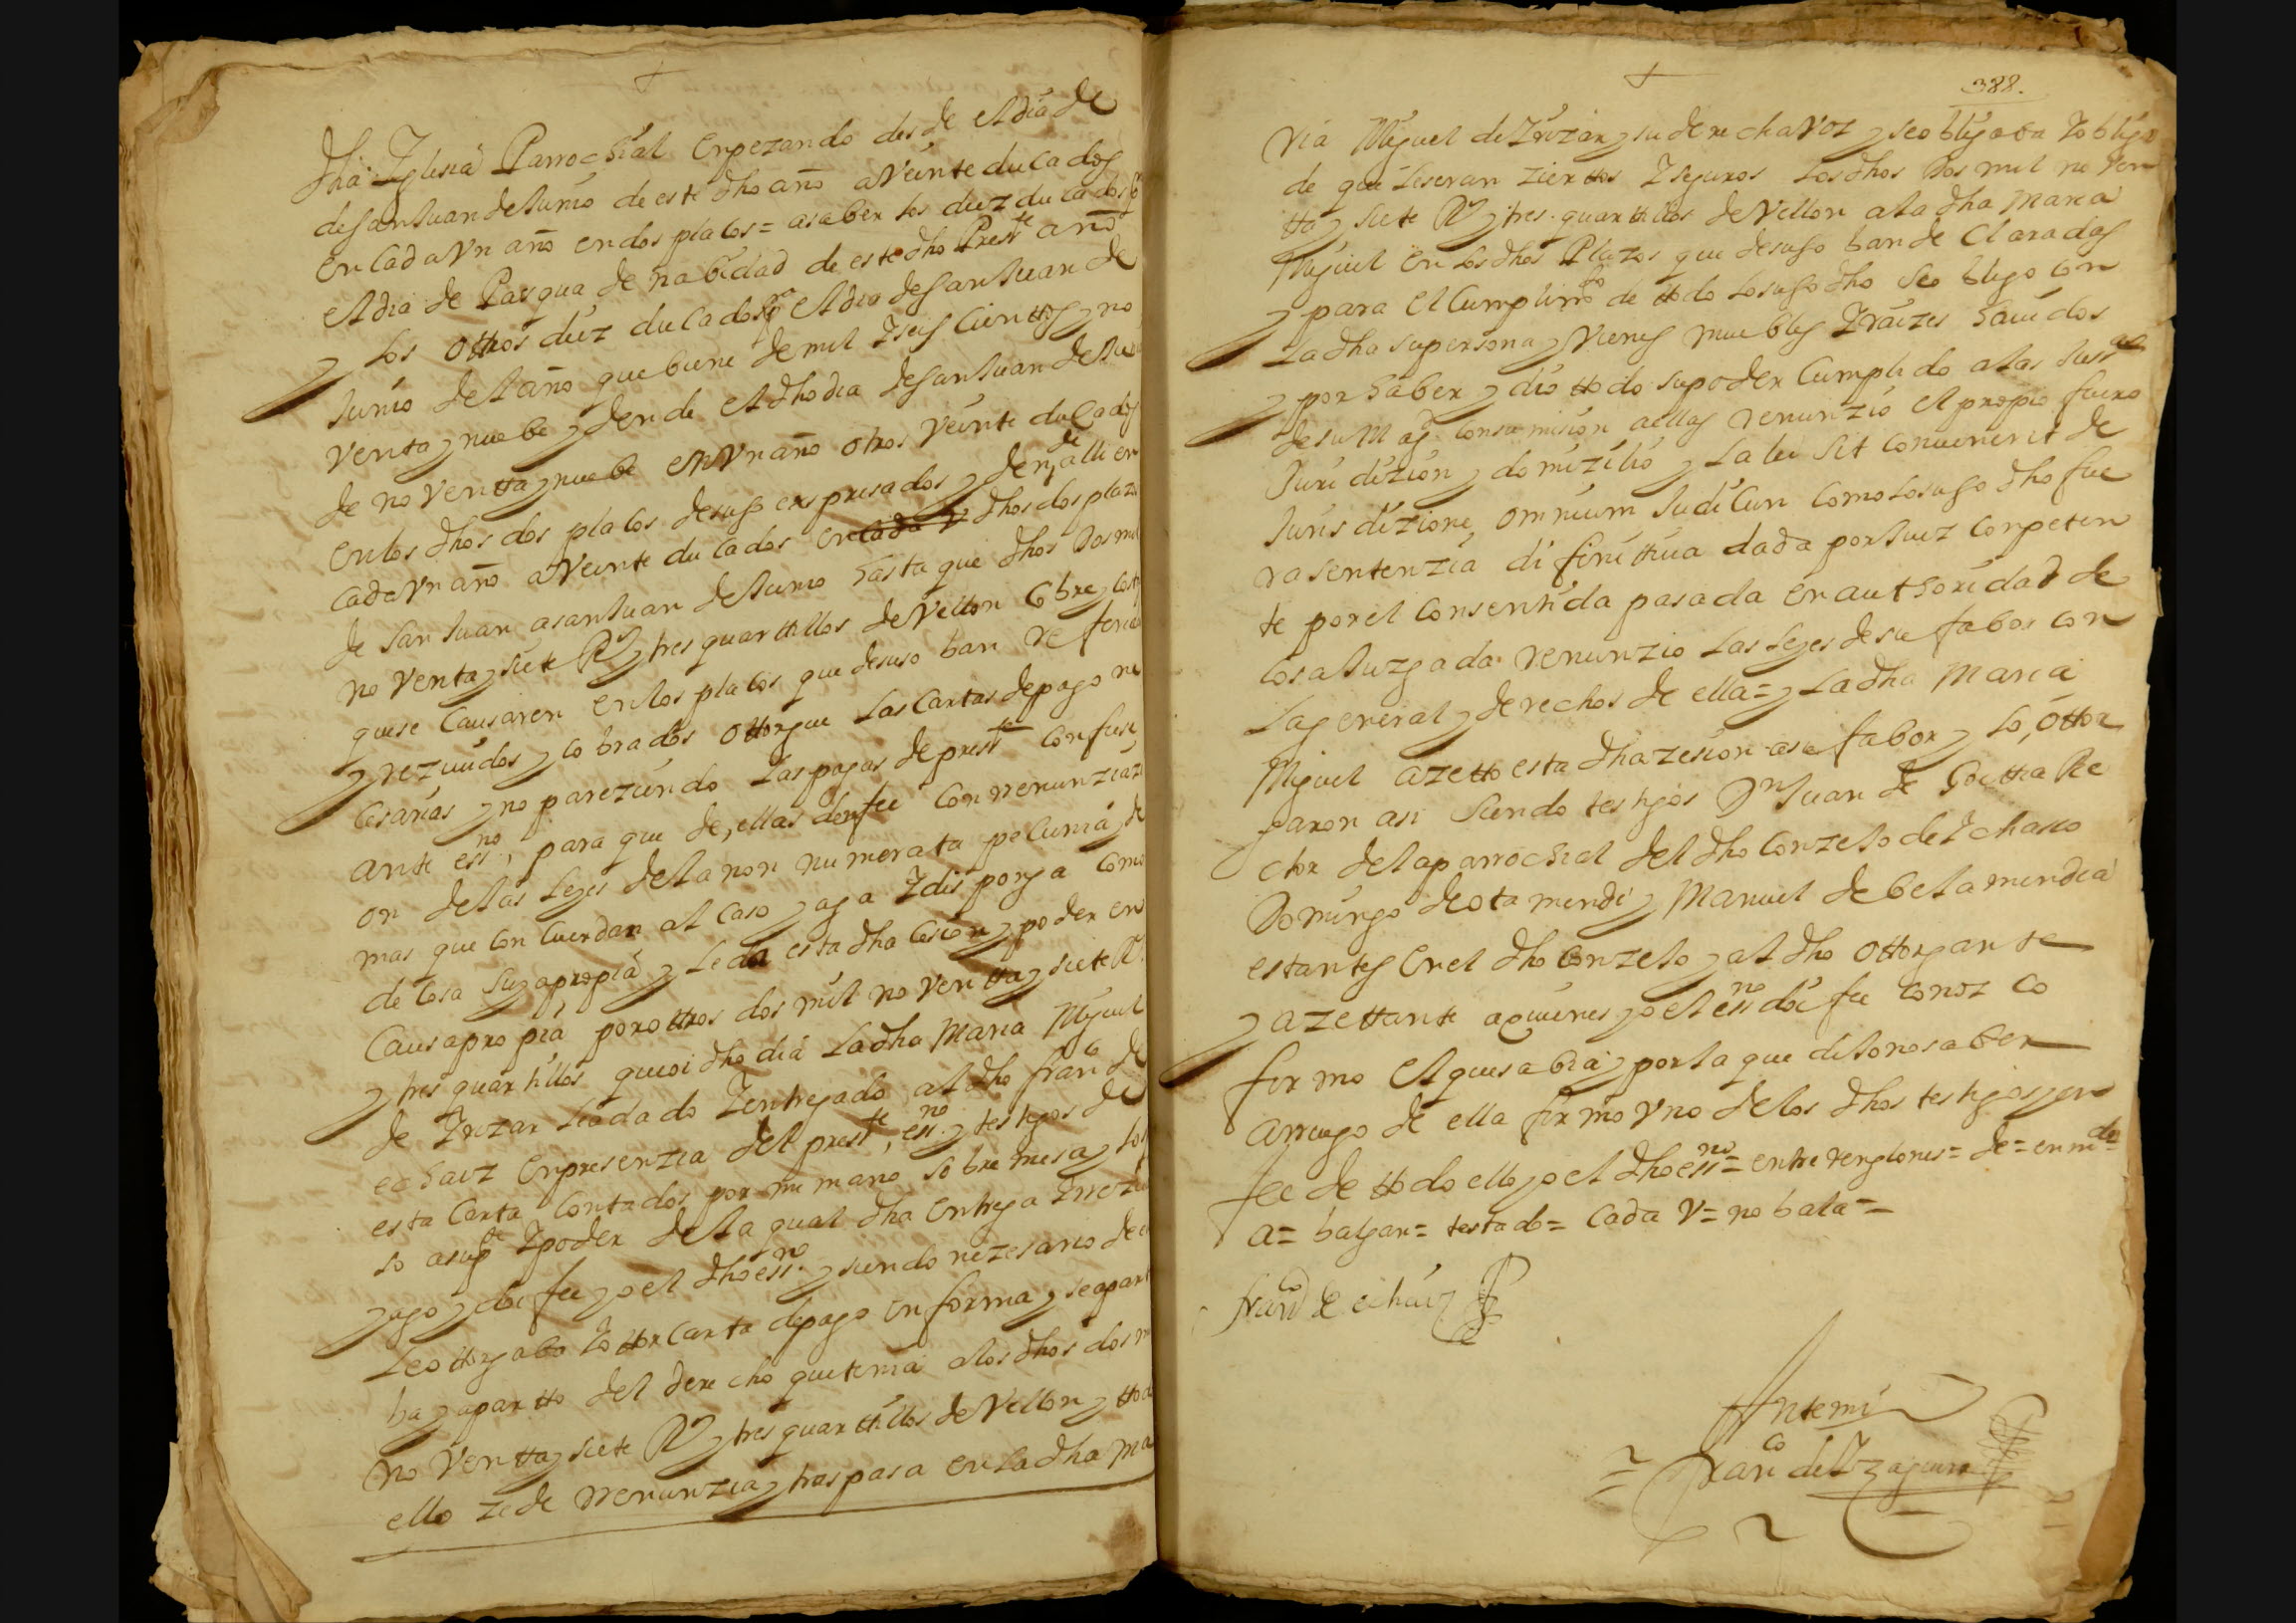 dha Iglesia Parrochial enpezando desde el dia de
de san Juan de Junio de este dho año a Veinte ducados
en cada Vn año en dos plaços = asaber los diez ducados pa
el dia de Pasqua de nabidad de este dho Presste año
y los ottros diez ducados pa el dia de san Juan de
Junio del año que biene de mil y seis cienttos y no
venta y nuebe y dende el dho dia de san Juan de Jun
de noventta y nuebe en Vn año otros Veinte ducados
en los dhos dos plaços desuso expresados y den de alli en
cada Vn año a Veinte ducados en cada V dhos dos plazos
de san Juan a san Juan de Junio hasta que dhos Dos mil
noventa y siete Rs y tres quarttillos de Vellon cobre y costas
que se causaren en los plaços que desuso ban referidos
y rezeuidos y cobrados ottorgue las cartas de pago ne
cesarias y no pareziendo las pagas de presste confiese
ante essno, para que de, ellas den fee con renunziazi
on de las leyes de la non numerata pecunia y de
mas que concuerdan al caso y aga y disponga como
de cosa suya propia y le da esta dha cesion y poder en
causa propia por ottros dos mil noventta y siete Rs
y tres quartillos que oi dho dia la dha Maria Miguel
de Yrizar le a dado y entregado al dho franco de
echaiz en presenzia del presste, essno y testigos de
esta carta contados por mi mano sobre mesa y los
so a su pe y poder de la qual dha entrega y rreziuo
y ago y doi fee yo el dho essno y siendo nezesario de
le ottorgaba y ottor carta de pago en forma y se apart
ba y apartto del derecho que tenia a los dhos dos mil
noventta y siete Rs y tres quarttillos de Vellon y ttodo
ello zede rrenunzia y traspasa en la dha Ma
388.
ria Miguel de Yrizar y su derecha voz y se obligaba y obligo
de que le seran zierttos y seguros los dhos Dos mil noven
tta y siete Rs y tres quarttillos de Vellon a la dha Maria
Miguel en los dhos Plazos que desuso ban declarados
y para el cumplimto de ttodo lo suso dho se obligo con
la dha su persona y vienes muebles y raizes hauidos
y por haber y dio ttodo su poder cumplido a las Justas
de su Magd. con sumision a ellas renunzio el propio fuero
Juridizion y domizilio y la lei sit convenerit de
Jurisdizione, omnium Judicun como lo suso dho fue
ra sentenzia difinittiua dada por Juez conpeten
te por el consentida pasada en authoridad de
cosa Juzgada renunzio las leyes de su fabor con
la general y derechos de ella = y la dha Maria
Miguel azetto esta dha zesion a su fabor y lo, ottor
garon asi siendo testigos Dn Juan de Goittia Re
ctor de la parrochial del dho conzejo de Ychasso
Domingo de otamendi y Manuel de belamendia
estantes en el dho conzejo y al dho ottorgante
y azettante a quienes yo el essno doi fee conozco
firmo el que sabia y por la que dijo no saber
a rruego de ella firmo vno de los dhos testigos y en
fee de ttodo ello yo el dho essno = entre renglones = de = enmdo
a = balgan = testado = cada V = no bala =
franco de echaiz
Ante mi
Franco de Yzaguirre